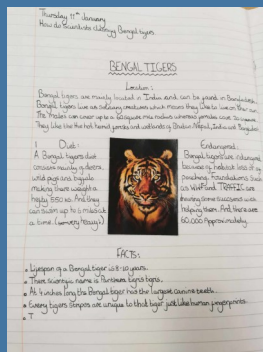 Thursday 11th January
How do scientists classify Bengal tigers
BENGAL TIGERS
Location:
Bengal tigers are mainly located in India and can be found in Bangladesh.
Bengal tigers live as solitary creatures which means they like to live on their own.
The males can cover up to a 60 square mile radius whereas females cover 20 square
They like the hot humid forests and wetlands of Bhutan, Nepal, India and Bangladesh
Diet:
A Bengal tigers diet
consists mainly of deers,
wild pigs and buffalo
making them weigh a
hefty 550 lbs. And they
can swim up to 5 miles at
a time.
Endangered:
Bengal tigers are endangered
because of habitat loss and
poaching. Foundations such
as WWF and TRAFFIC are
having some success with
helping them. And there are
60,000 Approximately.
FACTS:
Lifespan of a Bengal tiger is 8-10 years.
There scientific name is Panthera tigris tigris.
At 4 inches long the Bengal tiger has the largest canine teeth.
Every tigers stripes are unique to that tiger just like human fingerprints.
T